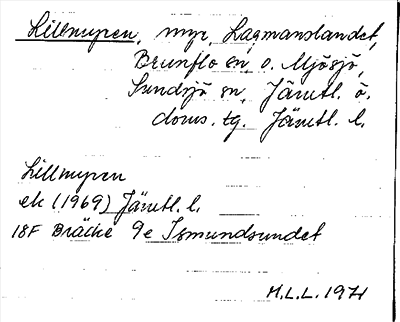 Lillmyren, myr, Lagmanslandet,
Brunflo sn, o. Mjösjö,
Sundsjö sn, Jämtl. ö.
doms. tg. Jämtl. l.
Lillmyren
ek (1969) Jämtl. l.
18F Bräcke 9e Ismundsundet
M.L.L. 1971